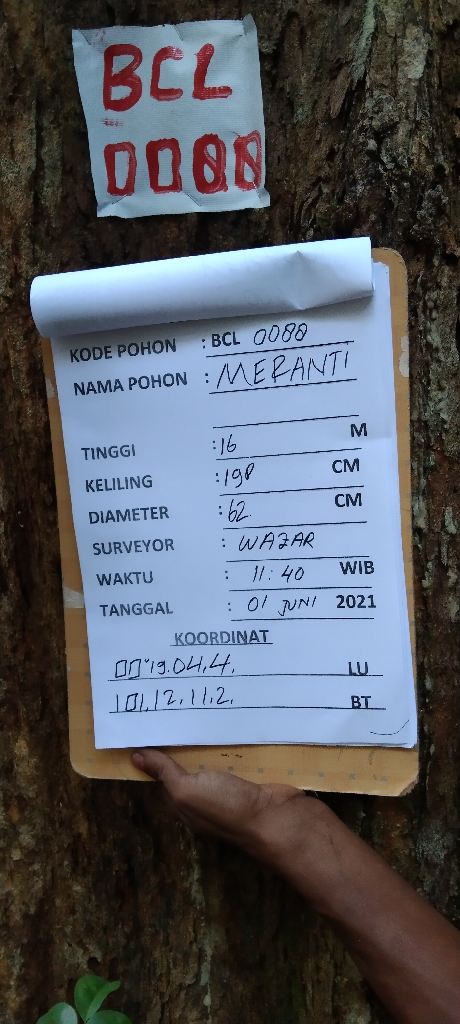 BCL
0088
KODE POHON : BCL 0088
NAMA POHON : MERANTI
TINGGI : 16 M
KELILING : 198 CM
DIAMETER : 62 CM
SURVEYOR : WAZAR
WAKTU : 11:40 WIB
TANGGAL : 01 JUNI 2021
KOORDINAT
00°19.04.4. LU
101.12.11.2. BT